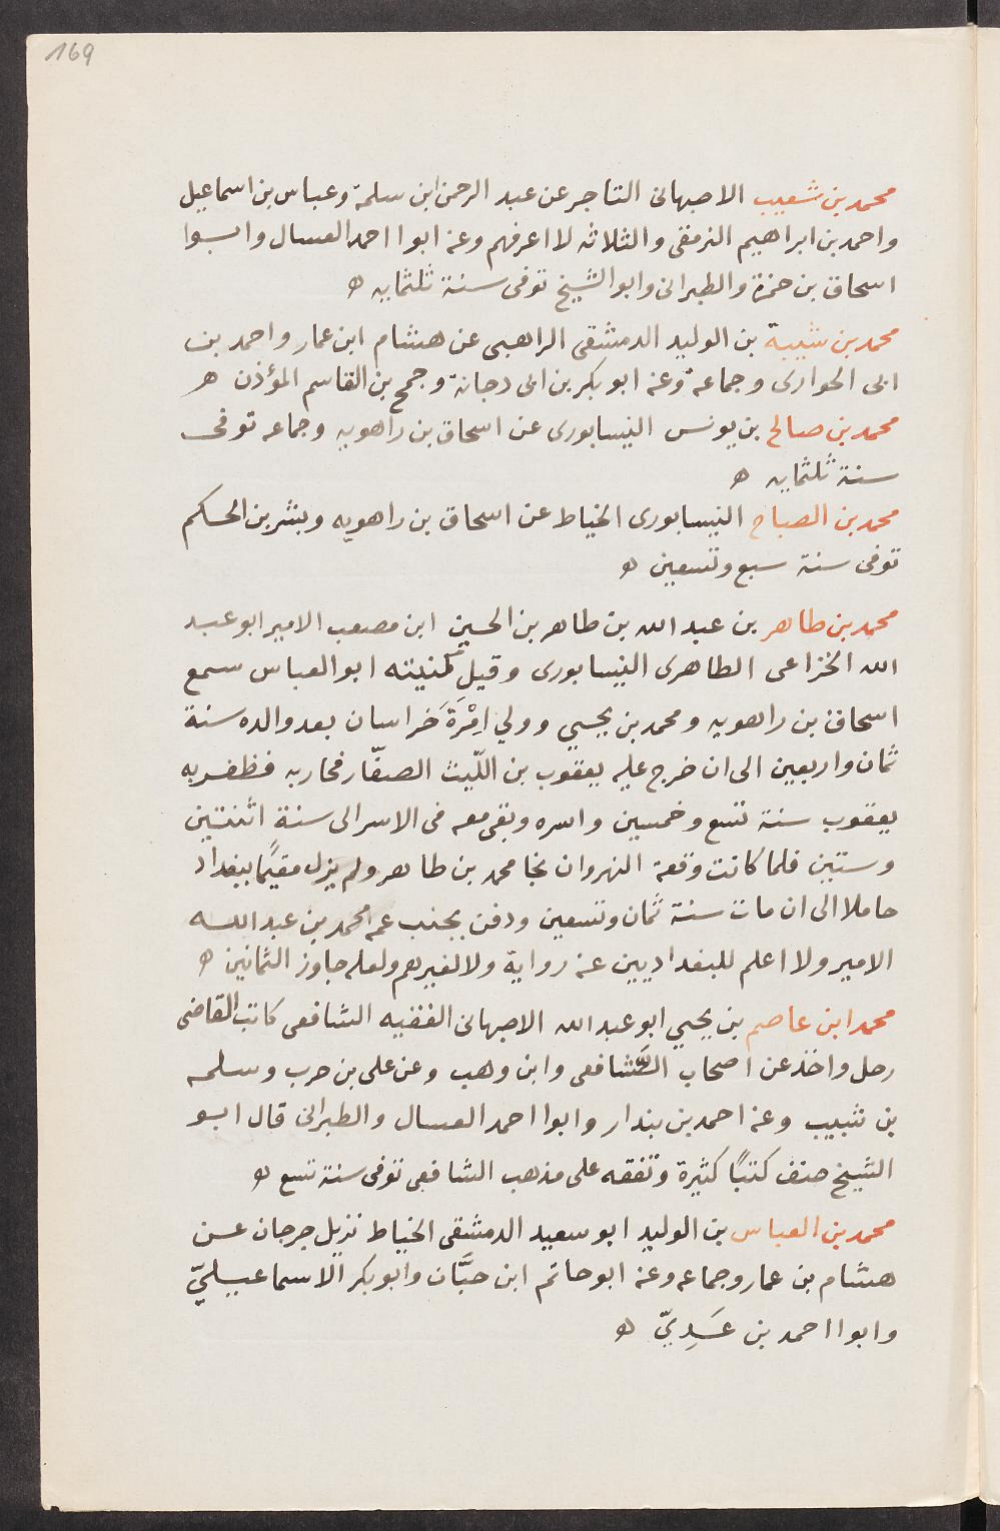 169
محمد بن شعيب الاصبهانى التاجر عن عبد الرحمن ابن سلمة وعباس بن اسماعيل
واحمد بن ابراهيم النرمقى والثلاثه لا اعرفهم وعنه ابوا احمد العسال وابوا
اسحاق بن حمزة والطبرانى وابو الشيخ توفى سنة ثلثمايه ه
محمد بن شيبة بن الوليد الدمشقى الراهبى عن هشام ابن عمار واحمد بن
ابى الحوارى وجماعة وعنه ابو بكر بن ابى دجانة وجمح بن القاسم المؤذن ه
محمد بن صالح بن يونس النيسابورى عن اسحاق بن راهويه وجماعه توفى
سنة ثلثمايه ه
محمد بن الصباح النيسابورى الخياط عن اسحاق بن راهويه وبشر بن الحكم
توفى سنة سبع وتسعين ه
محمد بن طاهر بن عبد الله بن طاهر بن الحسين ابن مصعب الامير ابو عبد
الله الخزاعى الطاهرى النيسابورى وقيل كنيته ابو العباس سمع
اسحاق بن راهويه ومحمد بن يحيي وولي امْرَةَ خراسان بعد والده سنة
ثمان واربعين الى ان خرج عليه يعقوب بن اللّيث الصفّار فحاربه فظفر به
يعقوب سنة تسع وخمسين واسره وبقى معه فى الاسر الى سنة اثنتين
وستين فلما كانت وقعة النهروان نجا محمد بن طاهر ولم يزل مقيمًا ببغداد
حاملا الى ان مات سنة ثمان وتسعين ودفن بجنب عمه محمد بن عبد الله
الامير ولا اعلم للبغداديين عنه رواية ولا لغيرهم ولعله جاوز الثمانين ه
محمد ابن عاصم بن يحيي ابو عبد الله الاصبهانى الفقيه الشافعى كاتب القاضى
رحل واخذ عن اصحاب الشافعى وابن وهب وعن على بن حرب وسلمه
بن شبيب وعنه احمد بن بندار وابوا احمد العسال والطبرانى قال ابو
الشيخ صنف كتبًا كثيرة وتفقه على مذهب الشافعى توفى سنة تسع ه
محمد بن العباس بن الوليد ابو سعيد الدمشقى الخياط نزيل جرجان عن
هشام بن عمار وجماعه وعنه ابو حاتم ابن حبَّان وابو بكر الاسماعيليّ
وابوا احمد بن عَدِيّ ه